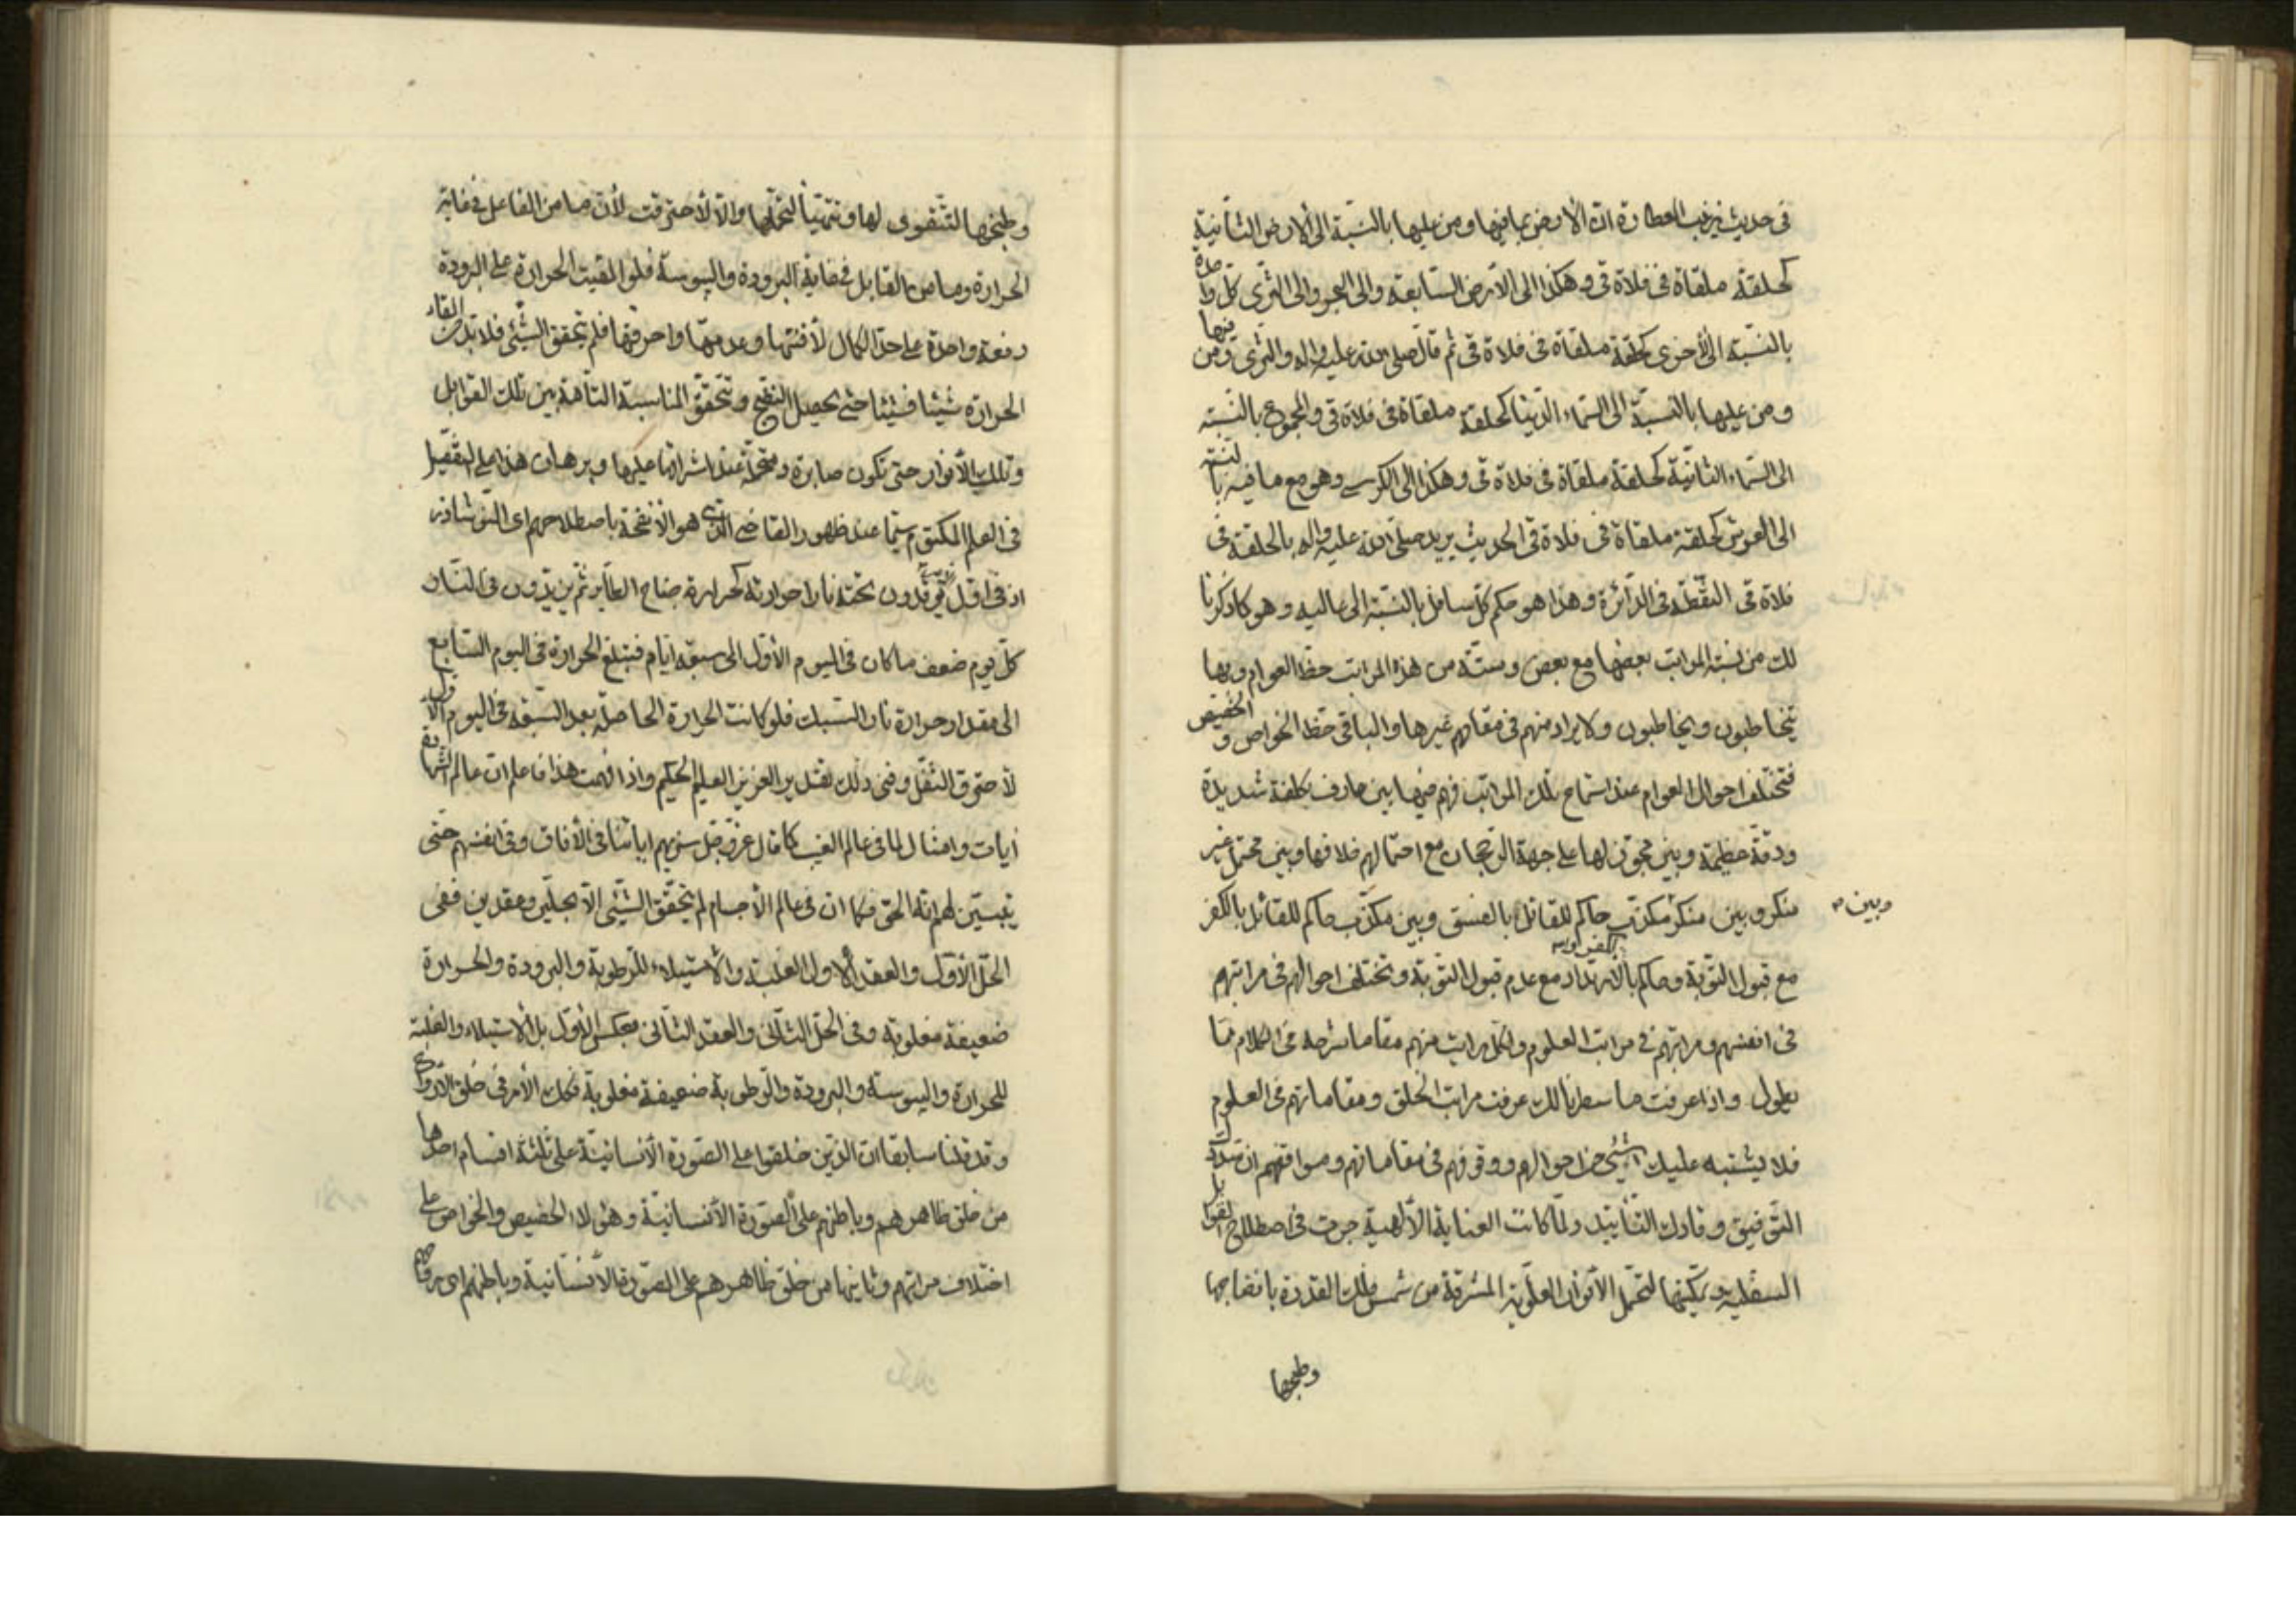 في حديث زينب العطارة ان الأرض بما فيها ومن عليها بالنسبة الى الأرض الثانية
كحلقة ملقاة في فلاة قي وهكذا الى الأرض السابعة والى البحر والى الثرى كل واحدة
بالنسبة الى الأخرى كحلقة ملقاة في فلاة قي ثم قال صلى الله عليه واله والثرى ومن فيها
ومن عليها بالنسبة الى السماء الدنيا كحلقة ملقاة في فلاة قي والمجموع بالنسبة
الى السماء الثانية كحلقة ملقاة في فلاة قي وهكذا الى الكرسي وهو مع ما فيه بالنسبة
الى العرش كحلقة ملقاة في فلاة قي الحديث يريد صلى الله عليه واله بالحلقة في
فلاة قي النقطة في الدائرة وهذا هو حكم كل سافل بالنسبة الى عاليه وهو كما ذكرنا
لك من نسبة المراتب بعضها مع بعض وستة من هذه المراتب حظ العوام وبها
يتخاطبون ويخاطبون ولا يراد منهم في مقامهم غيرها والباقي حظ الخواص والخصيص
فتختلف احوال العوام عند استماع تلك المراتب فهم فيها بين عارف بكلفة شديدة
ودقة عظيمة وبين مجوز لها على جهة الرجحان مع احتمالهم خلافها وبين محتمل غير
منكر وبين منكر مكذب حاكم للقائل بالفسق وبين مكذب حاكم للقائل بالكفر
وبين
مع قبول التوبة وحاكم بالكفر او بالارتداد مع عدم قبول التوبة وتختلف احوالهم في مراتبهم
في انفسهم ومراتبهم في مراتب العلوم ولكل مراتب منهم مقاما شرحه في الكلام مما
يطول واذا عرفت ما سطرنا لك عرفت مراتب الخلق ومقاماتهم في العلوم
فلا يشتبه عليك شيئ من احوالهم ووقوفهم في مقاماتهم ومواقفهم ان سددك
التوفيق وقادك التأييد ولما كانت العناية الألهية جرت في اصطلاح القوابل
السفلية وتمكينها لتحمل الأنوار العلوية المشرقة من شمس فلك القدرة بانضاجها
وطبخها
وطبخها لتتقوى لها وتتهيأ لتحملها والا لأحترقت لأن ما من الفاعل في غاية
الحرارة وما من القابل في غاية البرودة واليبوسة فلو القيت الحرارة على البرودة
دفعة واحدة على حد الكمال لأفنتها وعدمتها واحرقتها فلم يتحقق الشيئ فلا بد من القاء
الحرارة شيئا فشيئا حتى يحصل النضج وتتحقق المناسبة التامة بين تلك القوابل
وتلك الأنوار حتى تكون صابرة ومتحملة عند اشراقها عليها وبرهان هذا على التفصيل
في العلم المكتوم سيما عند ظهور القاضي الذي هو الأنفحة باصطلاحهم اى النوشاذر
اذ في اول توقدون تحته نارا حرارته كحرارة جناح الطاير ثم يزيدون في النار
كل يوم ضعف ما كان في اليوم الأول الى سبعة ايام فتبلغ الحرارة في اليوم السابع
الى مقدار حرارة نار السبك فلو كانت الحرارة الحاصلة بعد السبعة في اليوم الأول
لأحترق الثفل وفنى ذلك تقدير العزيز العليم الحكيم واذا فهمت هذا فاعلم ان عالم الشهادة
آيات وامثال لما في عالم الغيب كما قال عز وجل سنريهم اياتنا في الأفاق وفي انفسهم حتى
يتبين لهم انه الحق فكما ان في عالم الأجسام لم يتحقق الشيئ الا بحلين وعقدين ففي
الحل الأول والعقد الأول الغلبة والأستيلاء للرطوبة والبرودة والحرارة
ضعيفة مغلوبة وفي الحل الثاني والعقد الثاني بعكس الأول بل الأستيلاء والغلبة
للحرارة واليبوسة والبرودة والرطوبة ضعيفة مغلوبة فكك الأمر في خلق الأرواح
وقد قلنا سابقا ان الذين خلقوا على الصورة الأنسانية على ثلثة اقسام احدها
من خلق ظاهرهم وباطنهم على الصورة الأنسانية وهؤلاء الخصيص والخواص على
اختلاف مراتبهم وثانيها من خلق ظاهرهم على الصورة الأنسانية وباطنهم اى